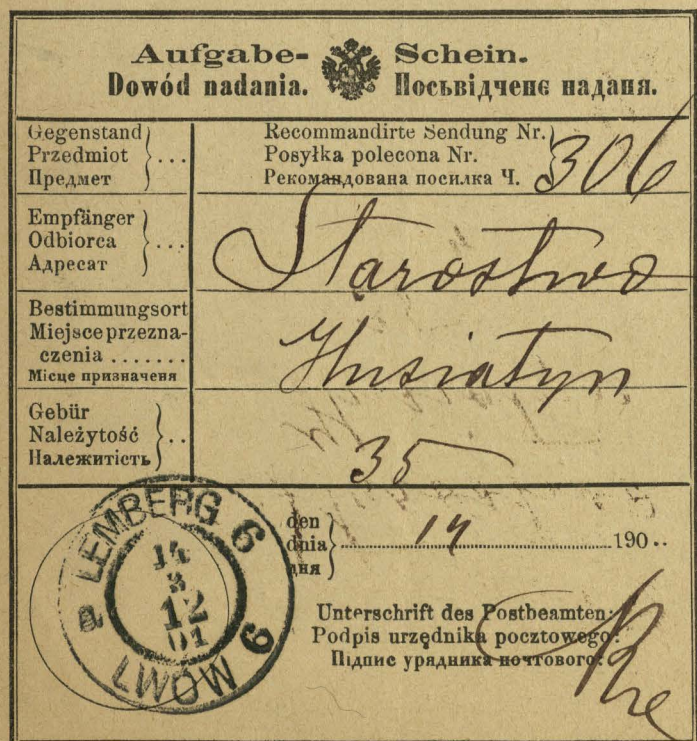 Aufgabe- Schein.
Dowód nadania. Посьвідченє наданя.
Gegenstand
Przedmiot ...
Предмет
Recommandirte Sendung Nr.
Posyłka polecona Nr. 306
Рекомандована посилка Ч.
Empfänger
Odbiorca ...
Адресат
Starostwo
Bestimmungsort
Miejsce przezna-
czenia .......
Місце призначеня
Husiatyn
Gebür
Należytość ..
Належитість
35
LEMBERG 6
a
14
3
12
01
LWÓW 6
den
dnia 14 190..
дня
Unterschrift des Postbeamten:
Podpis urzędnika pocztowego:
Підпис урядника почтового: